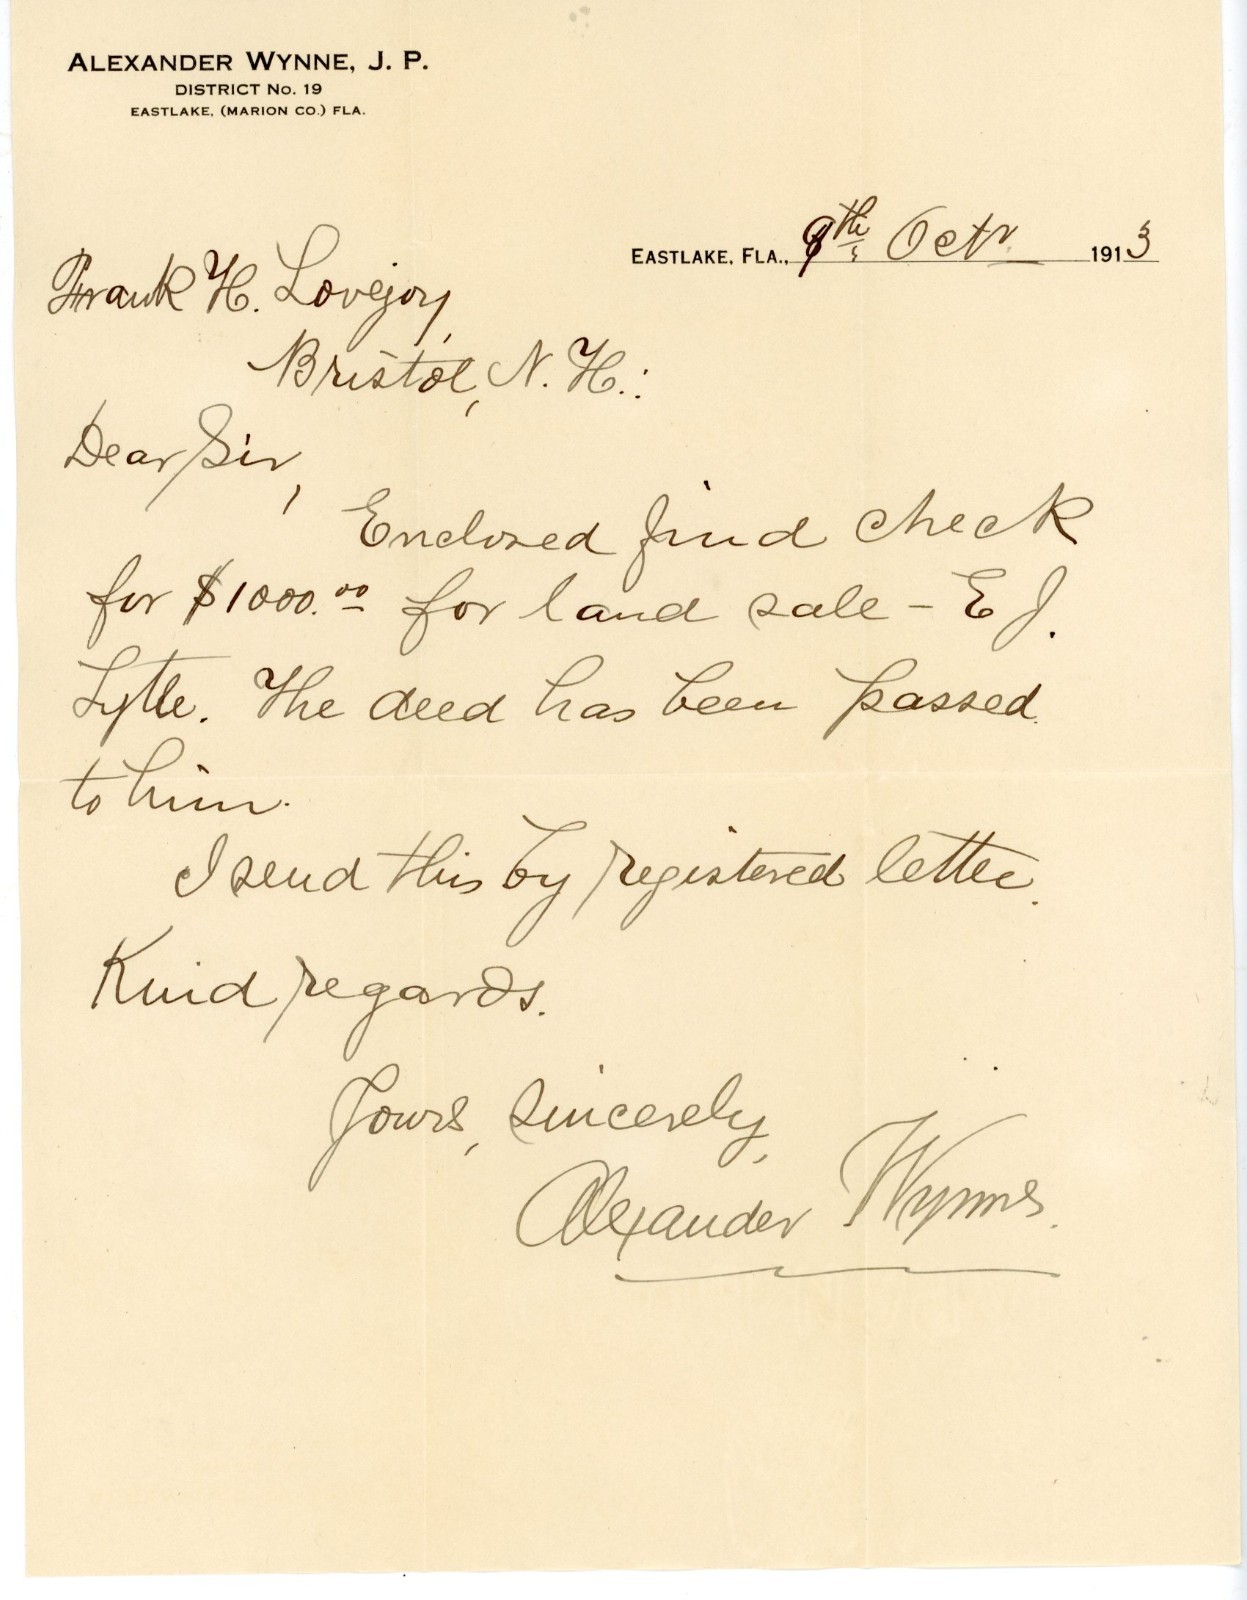 ALEXANDER WYNNE, J. P.
DISTRICT No. 19
EASTLAKE, (MARION CO.) FLA.
EASTLAKE, FLA., 9th Octr 1913
Frank H. Lovejoy,
Bristol, N. H.:
Dear Sir,
Enclosed find check
for $1000.00 for land sale – E J.
Lytle. The deed has been passed
to him.
I send this by registered letter.
Kind regards.
Yours, sincerely,
Alexander Wynne.